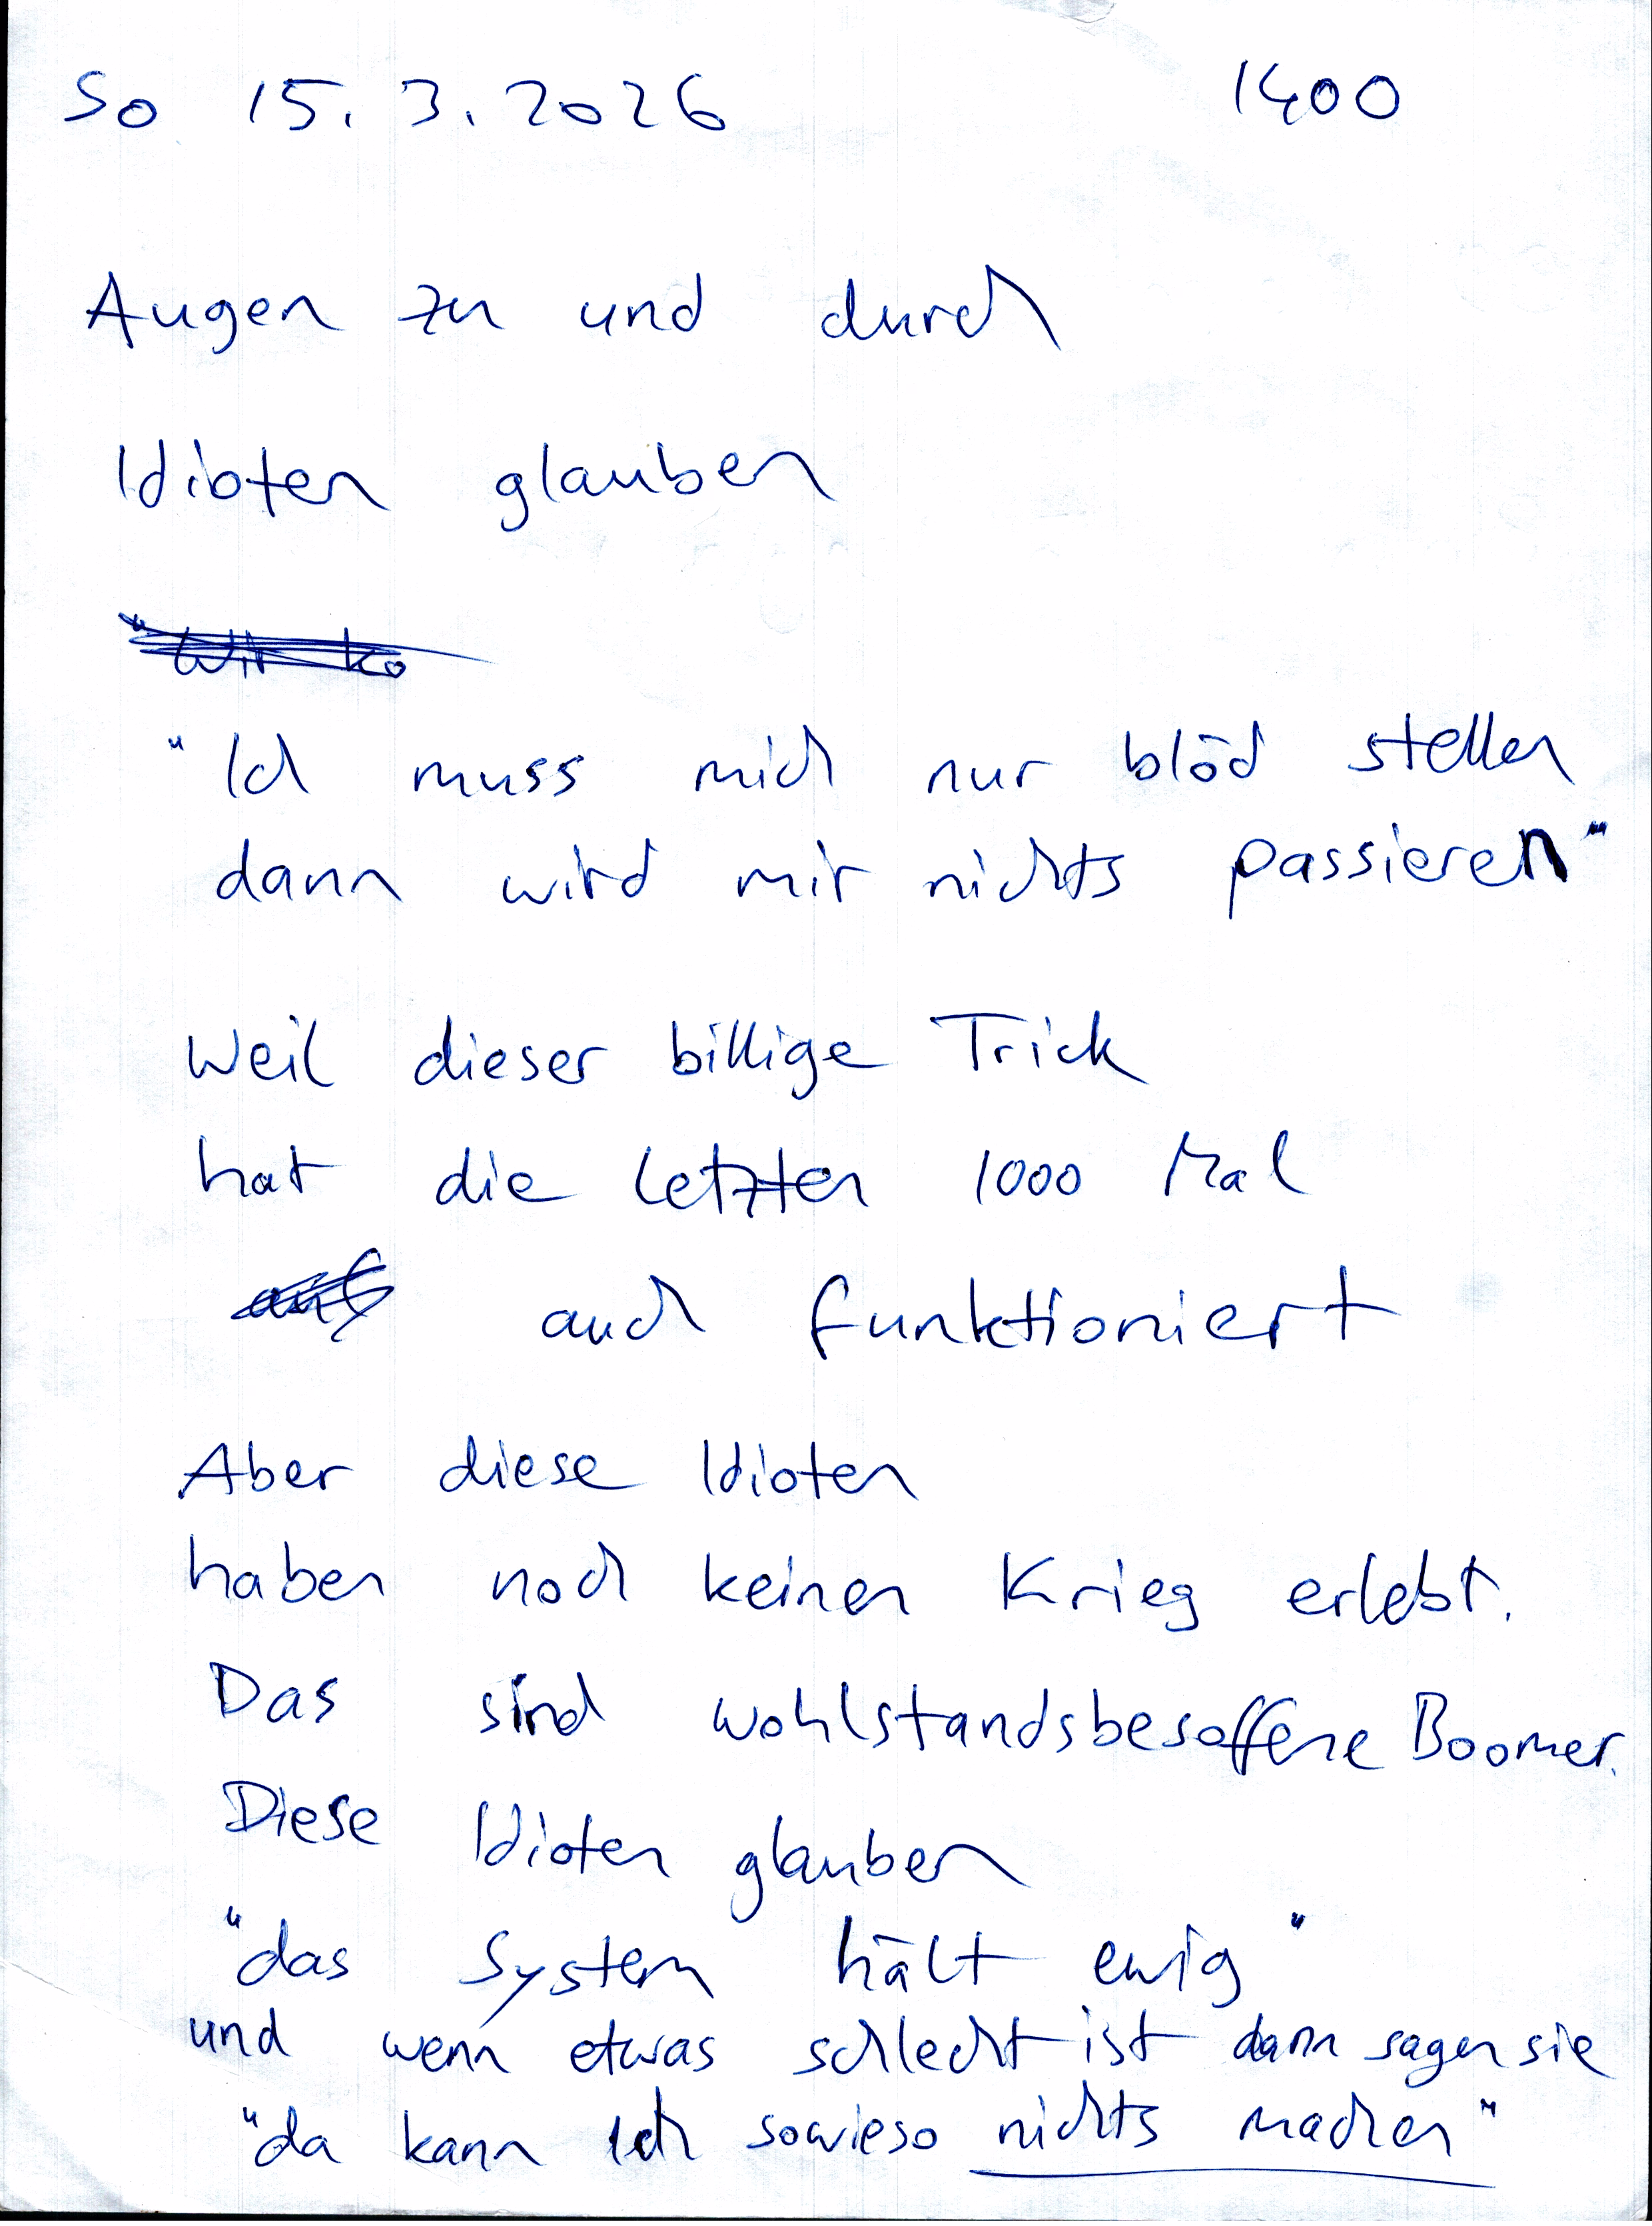 So 15.3.2026 1400
Augen zu und durch
Idioten glauben
"Wir ko
"Ich muss mich nur blöd stellen
dann wird mir nichts passieren"
Weil dieser billige Trick
hat die letzten 1000 Mal
auf auch funktioniert
Aber diese Idioten
haben noch keinen Krieg erlebt.
Das sind wohlstandsbesoffene Boomer.
Diese Idioten glauben
"das System hält ewig"
und wenn etwas schlecht ist dann sagen sie
"da kann ich sowieso nichts machen"